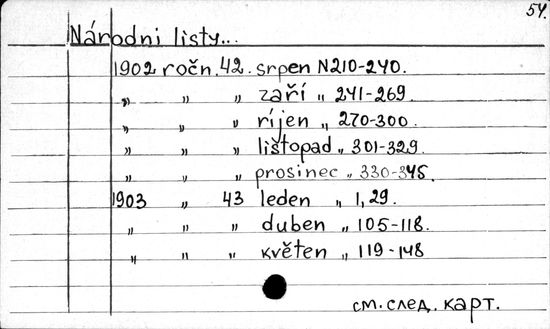 54.
Národni listy...
1902 ročn. 42. srpen N210-240.
„ „ „ září „ 241-269.
„ „ „ ríjen „ 270-300.
„ „ „ listopad „ 301-329.
„ „ „ prosinec „ 330-345.
1903 „ 43 leden „ 1, 29.
„ „ „ duben „ 105-118.
„ „ „ květen „ 119-148
см. след. карт.